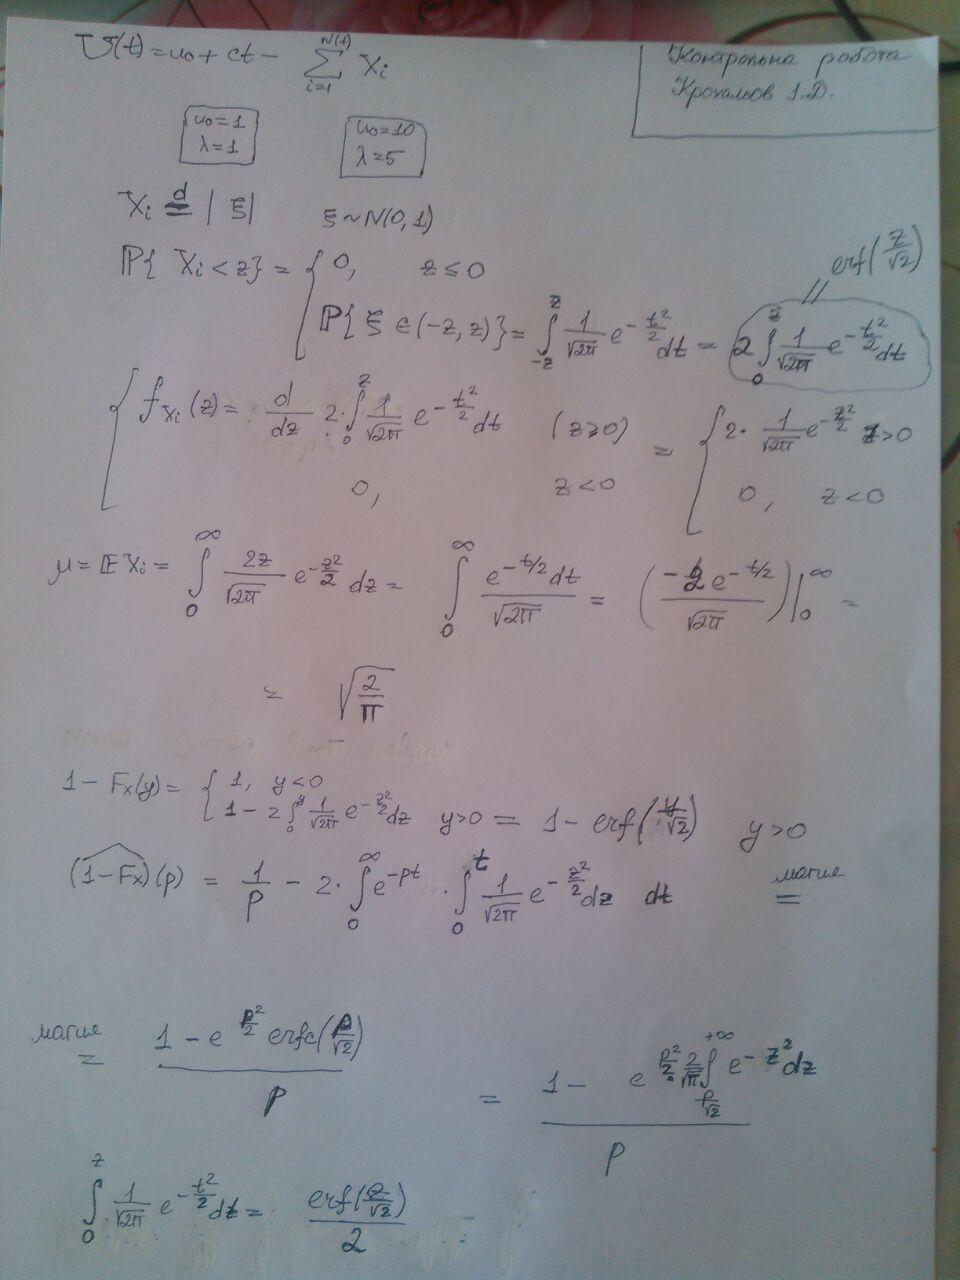 U(t) = u₀ + ct − ∑_{i=1}^{N(t)} X_i
Контрольна робота
Крохальов І.Д.
u₀ = 1
λ = 1
u₀ = 10
λ = 5
X_i =^d |ξ| ξ ~ N(0, 1)
erf(z/√2)
P{X_i < z} = { 0, z ≤ 0
P{ξ ∈ (−z, z)} = ∫_{−z}^{z} 1/√2π e^{−t²/2} dt = 2 ∫_0^z 1/√2π e^{−t²/2} dt
{ f_{X_i}(z) = d/dz 2·∫_0^z 1/√2π e^{−t²/2} dt (z ≥ 0) = { 2· 1/√2π e^{−z²/2} z > 0
0, z < 0 0, z < 0
μ = E X_i = ∫_0^∞ 2z/√2π e^{−z²/2} dz = ∫_0^∞ e^{−t/2} dt/√2π = (−2e^{−t/2}/√2π)|_0^∞ =
= √(2/π)
1 − F_X(y) = { 1, y < 0
1 − 2 ∫_0^y 1/√2π e^{−z²/2} dz y > 0 = 1 − erf(y/√2) y > 0
(1 − F_X)^(p) = 1/p − 2· ∫_0^∞ e^{−pt} · ∫_0^t 1/√2π e^{−z²/2} dz dt магия =
магия = (1 − e^{p²/2} erfc(p/√2))/p = (1 − e^{p²/2} · 2/√π ∫_{p/√2}^{+∞} e^{−z²} dz)/p
∫_0^z 1/√2π e^{−t²/2} dt = erf(z/√2)/2